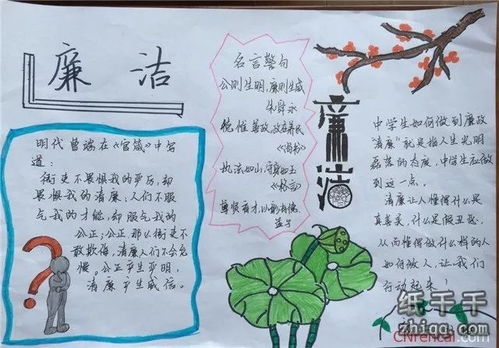 廉 洁
明代曾端在《官箴》中写
道:
衙吏不畏惧我的严厉,却
畏惧我的清廉,人们不服
气我的才能,却服气我的
公正;公正那么衙吏不
敢欺侮,清廉人们不会怠
慢。公正产生严明,
清廉产生威信。
名言警句
公则生明,廉则生威
朱舜水
德惟善政,政在养民
《尚书》
执法如山,守身如玉
《格言》
尊贤育才,以彰有德
孟子
廉洁
中学生如何做到廉政
"清廉"就是指人生光明
磊落的态度,中学生应做
到这一点。
清廉让人懂得什么是
真善美,什么是假丑恶,
从而懂得做什么样的人
如何做人,让我们
行动起来!
纸千千
zhiqq.com
CNrencai.com